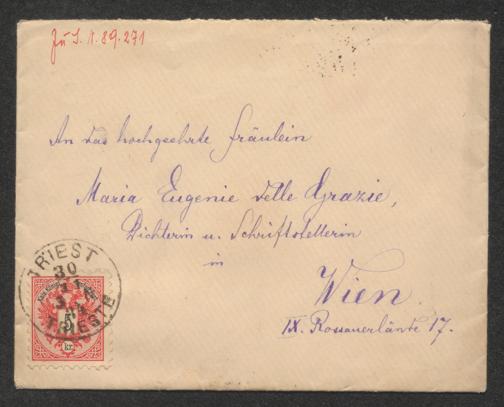 Zu I. N. 89.271
An das hochgeehrte Fräulein
Maria Eugenie delle Grazie,
Dichterin u. Schriftstellerin
in
Wien.
IX. Rossauerlände 17.
TRIEST
30
TRIESTE
5
kr.